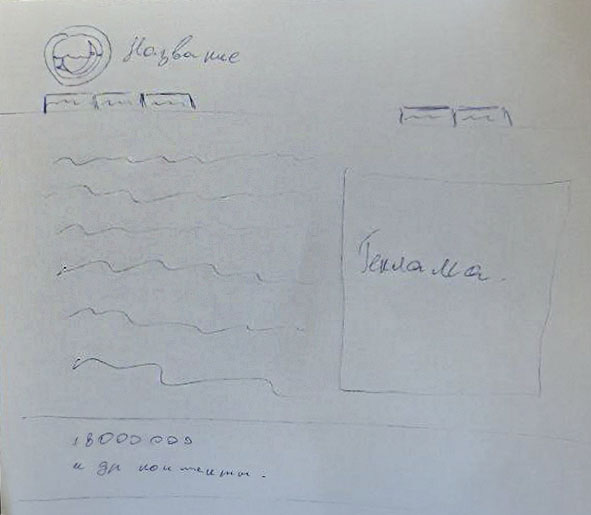 Название
Реклама.
18000009
и др контакты.